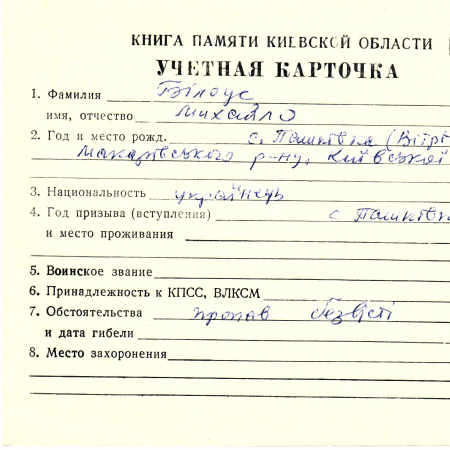 КНИГА ПАМЯТИ КИЕВСКОЙ ОБЛАСТИ
УЧЕТНАЯ КАРТОЧКА
1. Фамилия Білоус
имя, отчество Михайло
2. Год и место рожд. с. Пашківка (Вітрі
Макарівського р-ну, Київської
3. Национальность українець
4. Год призыва (вступления) с Пашківка
и место проживания
5. Воинское звание
6. Принадлежность к КПСС, ВЛКСМ
7. Обстоятельства пропав безвісті
и дата гибели
8. Место захоронения